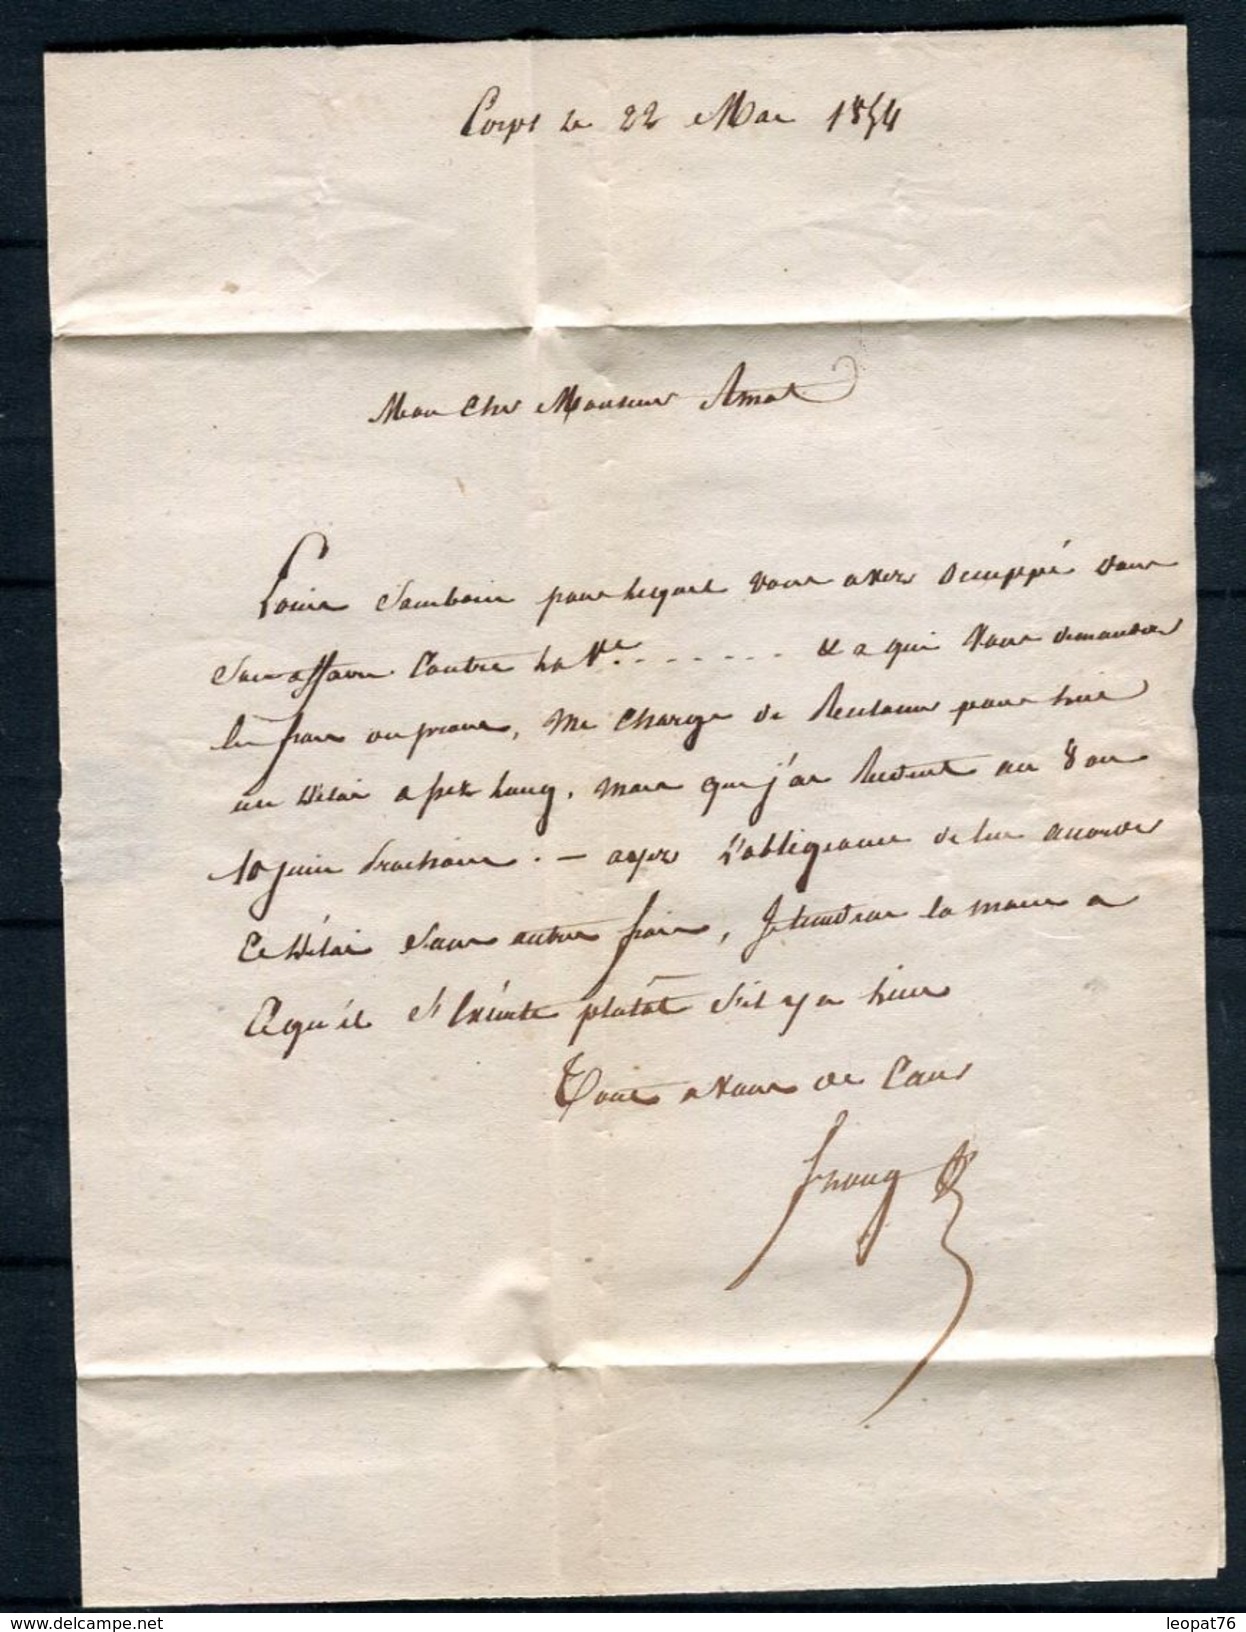 Corps le 22 Mai 1854
Mon cher Monsieur Amat
Louis pour lequel vous avez occuppé dans
son affaire contre la Ve. - - - - - - - & a qui vous demandez
les frais ou prane, me charge de Reclamer pour lui
un délai assez long, mais que j'ai Reduit au 8 ou
10 juin prochain . — ayez l'obligeance de lui accorder
ce délai sans autres frais, je tiendrai la main a
ce qu'il s'Exécute plutôt s'il y a lieu
Tout a vous de Cœur
leopat76